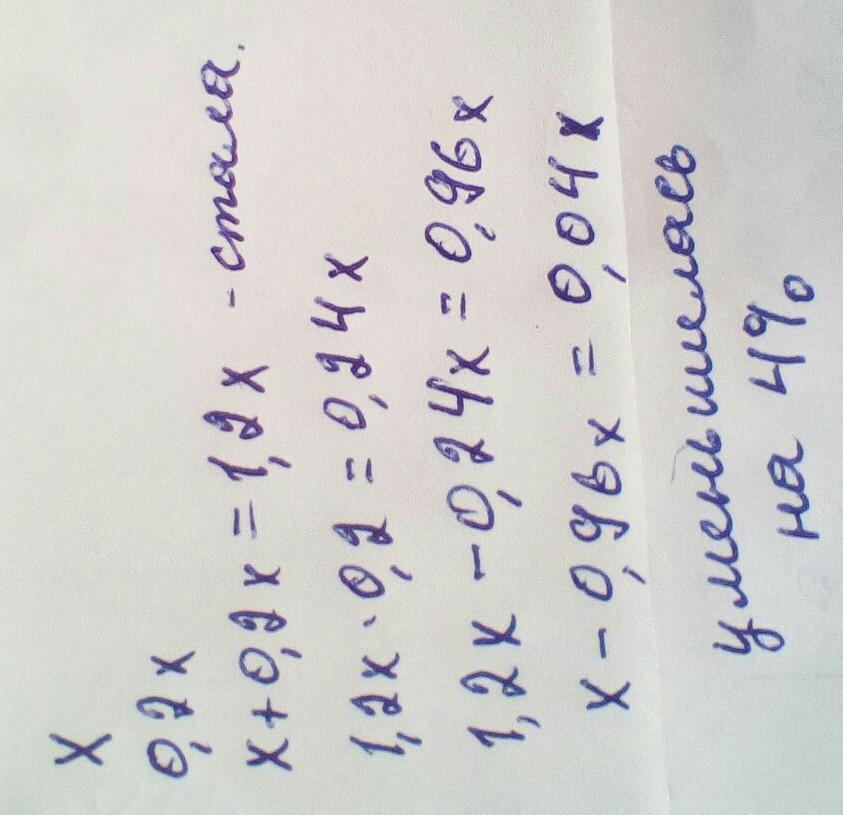 x
0,2x
x+0,2x=1,2x - стала.
1,2x·0,2=0,24x
1,2x-0,24x=0,96x
x-0,96x=0,04x
уменьшилась
на 4%